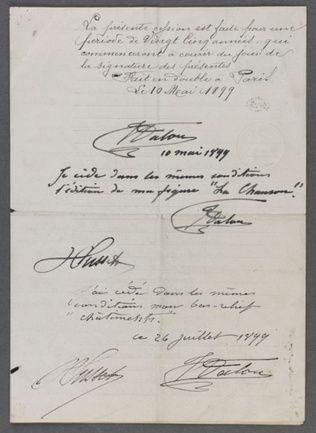 La présente cession est faite pour une
période de Vingt Cinq années, qui
commenceront à courir du jour de
la signature des présentes
Fait en double à Paris
Le 10 Mai 1899
J Dalou
10 mai 1899
Je cède dans les mêmes conditions
l'édition de ma figure "La Chanson".
J Dalou
J'ai cédé dans les mêmes
conditions mon bas-relief
"châtiments".
ce 26 juillet 1899
J Dalou